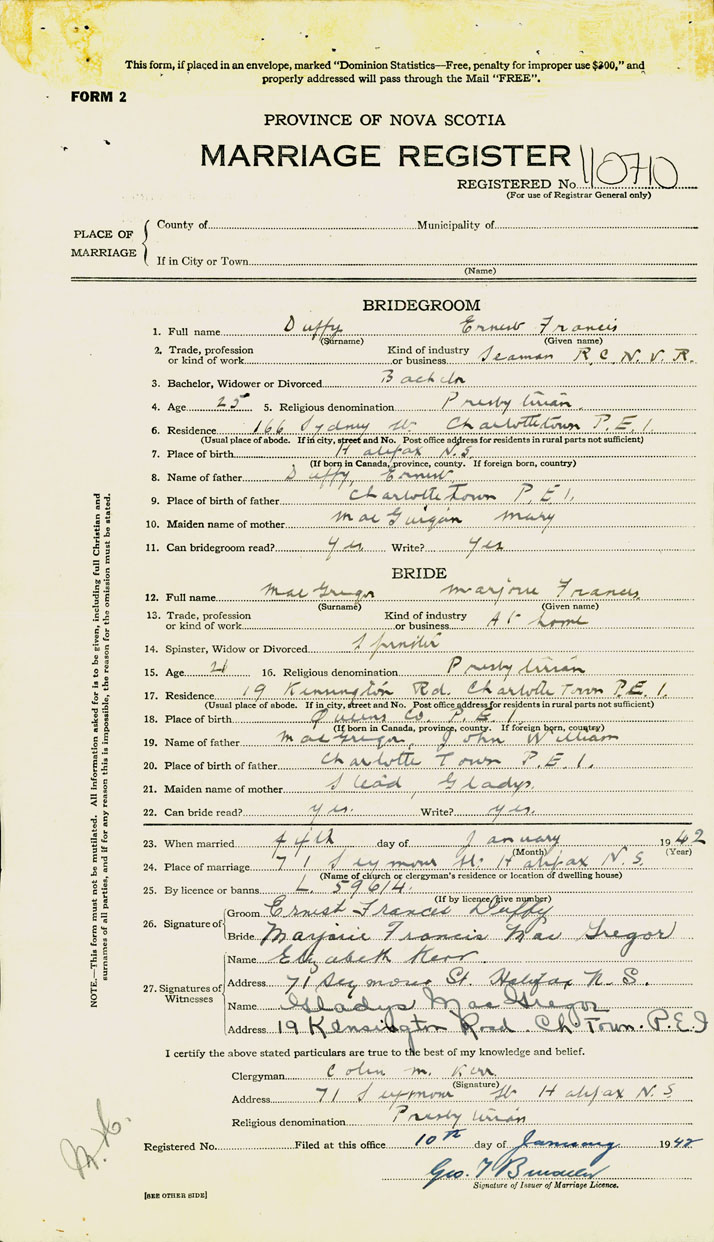 This form, if placed in an envelope, marked "Dominion Statistics—Free, penalty for improper use $300," and
properly addressed will pass through the Mail "FREE".
FORM 2
PROVINCE OF NOVA SCOTIA
MARRIAGE REGISTER
REGISTERED No. 110710
(For use of Registrar General only)
PLACE OF MARRIAGE
County of Municipality of
If in City or Town
(Name)
BRIDEGROOM
1. Full name Duffy Ernest Francis
(Surname) (Given name)
2. Trade, profession or kind of work Kind of industry or business Seaman R.C.N.V.R.
3. Bachelor, Widower or Divorced Bachelor
4. Age 25 5. Religious denomination Presbyterian
6. Residence 166 Sydney St. Charlottetown P.E.I.
(Usual place of abode. If in city, street and No. Post office address for residents in rural parts not sufficient)
7. Place of birth Halifax N.S.
(If born in Canada, province, county. If foreign born, country)
8. Name of father Duffy, Ernest
9. Place of birth of father Charlottetown P.E.I.
10. Maiden name of mother MacGuigan Mary
11. Can bridegroom read? Yes Write? Yes
BRIDE
12. Full name MacGregor Marjorie Francis
(Surname) (Given name)
13. Trade, profession or kind of work Kind of industry or business At home
14. Spinster, Widow or Divorced Spinster
15. Age 21 16. Religious denomination Presbyterian
17. Residence 19 Kensington Rd. Charlotte Town P.E.I.
(Usual place of abode. If in city, street and No. Post office address for residents in rural parts not sufficient)
18. Place of birth Queens Co. P.E.I.
(If born in Canada, province, county. If foreign born, country)
19. Name of father MacGregor, John William
20. Place of birth of father Charlotte Town P.E.I.
21. Maiden name of mother Stead, Gladys
22. Can bride read? yes. Write? yes.
23. When married day of January 1942
(Month) (Year)
24. Place of marriage 71 Seymour St. Halifax N.S.
(Name of church or clergyman's residence or location of dwelling house)
25. By licence or banns L. 59614.
(If by licence, give number)
26. Signature of
Groom Ernest Francis Duffy
Bride Marjorie Francis MacGregor
27. Signatures of Witnesses
Name Elizabeth Kerr
Address 71 Seymour St. Halifax N.S.
Name Gladys MacGregor
Address 19 Kensington Road. Ch Town. P.E.I
I certify the above stated particulars are true to the best of my knowledge and belief.
Clergyman Colin M. Kerr
(Signature)
Address 71 Seymour St Halifax N.S
Religious denomination Presbyterian
Registered No. Filed at this office 10th day of January 1942
Geo. T
Signature of Issuer of Marriage Licence.
[SEE OTHER SIDE]
NOTE.—This form must not be mutilated. All information asked for is to be given, including full Christian and
surnames of all parties, and if for any reason this is impossible, the reason for the omission must be stated.